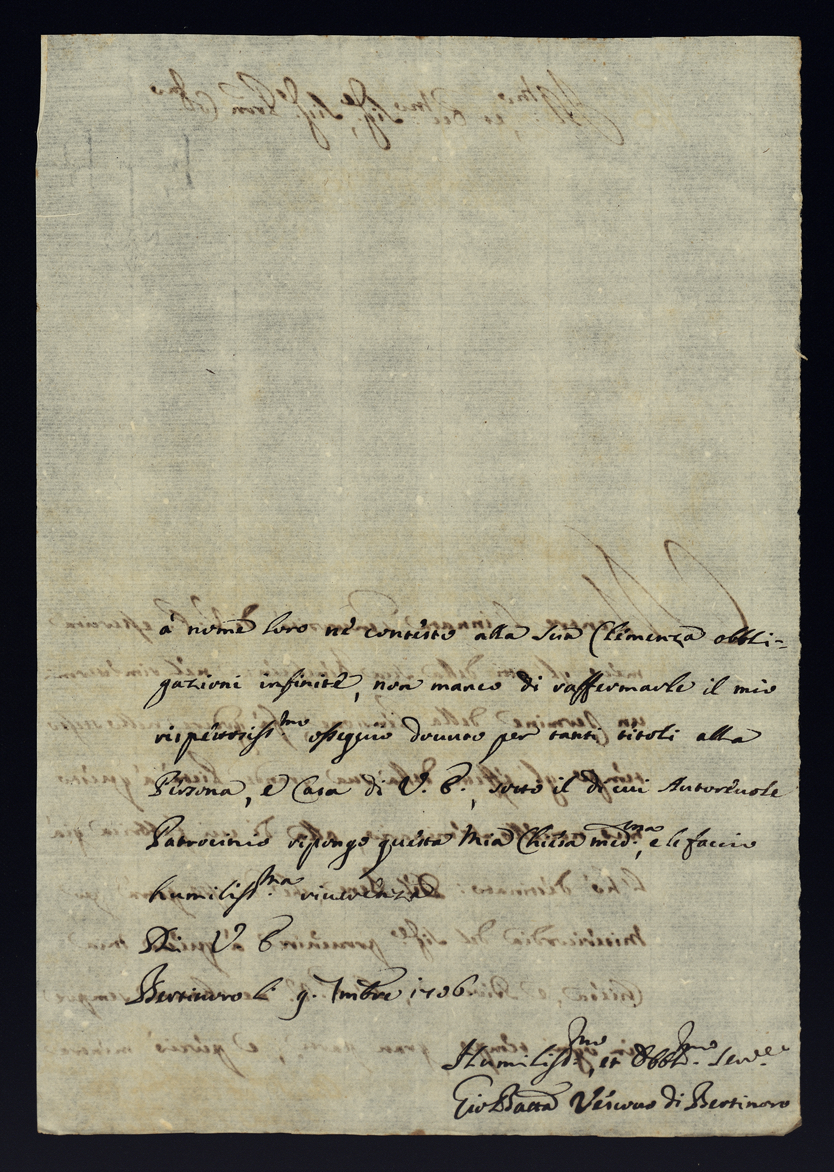 a' nome loro ne contesto alla sua Clemenza obbli-
gazioni infinite, non manco di raffermarle il mio
rispettosiss.mo ossequio douuto per tanti titoli alla
Persona, e Casa di V. E., sotto il di cui Autoreuole
Patrocinio ripongo questa mia Chiesa med.ma, e le faccio
humiliss.ma riuerenza
Di V. E.
Bertinoro li 9. 7mbre 1706
Humiliss.mo, et Obblig.mo Seru.e
Gio Batta Vescouo di Bertinoro